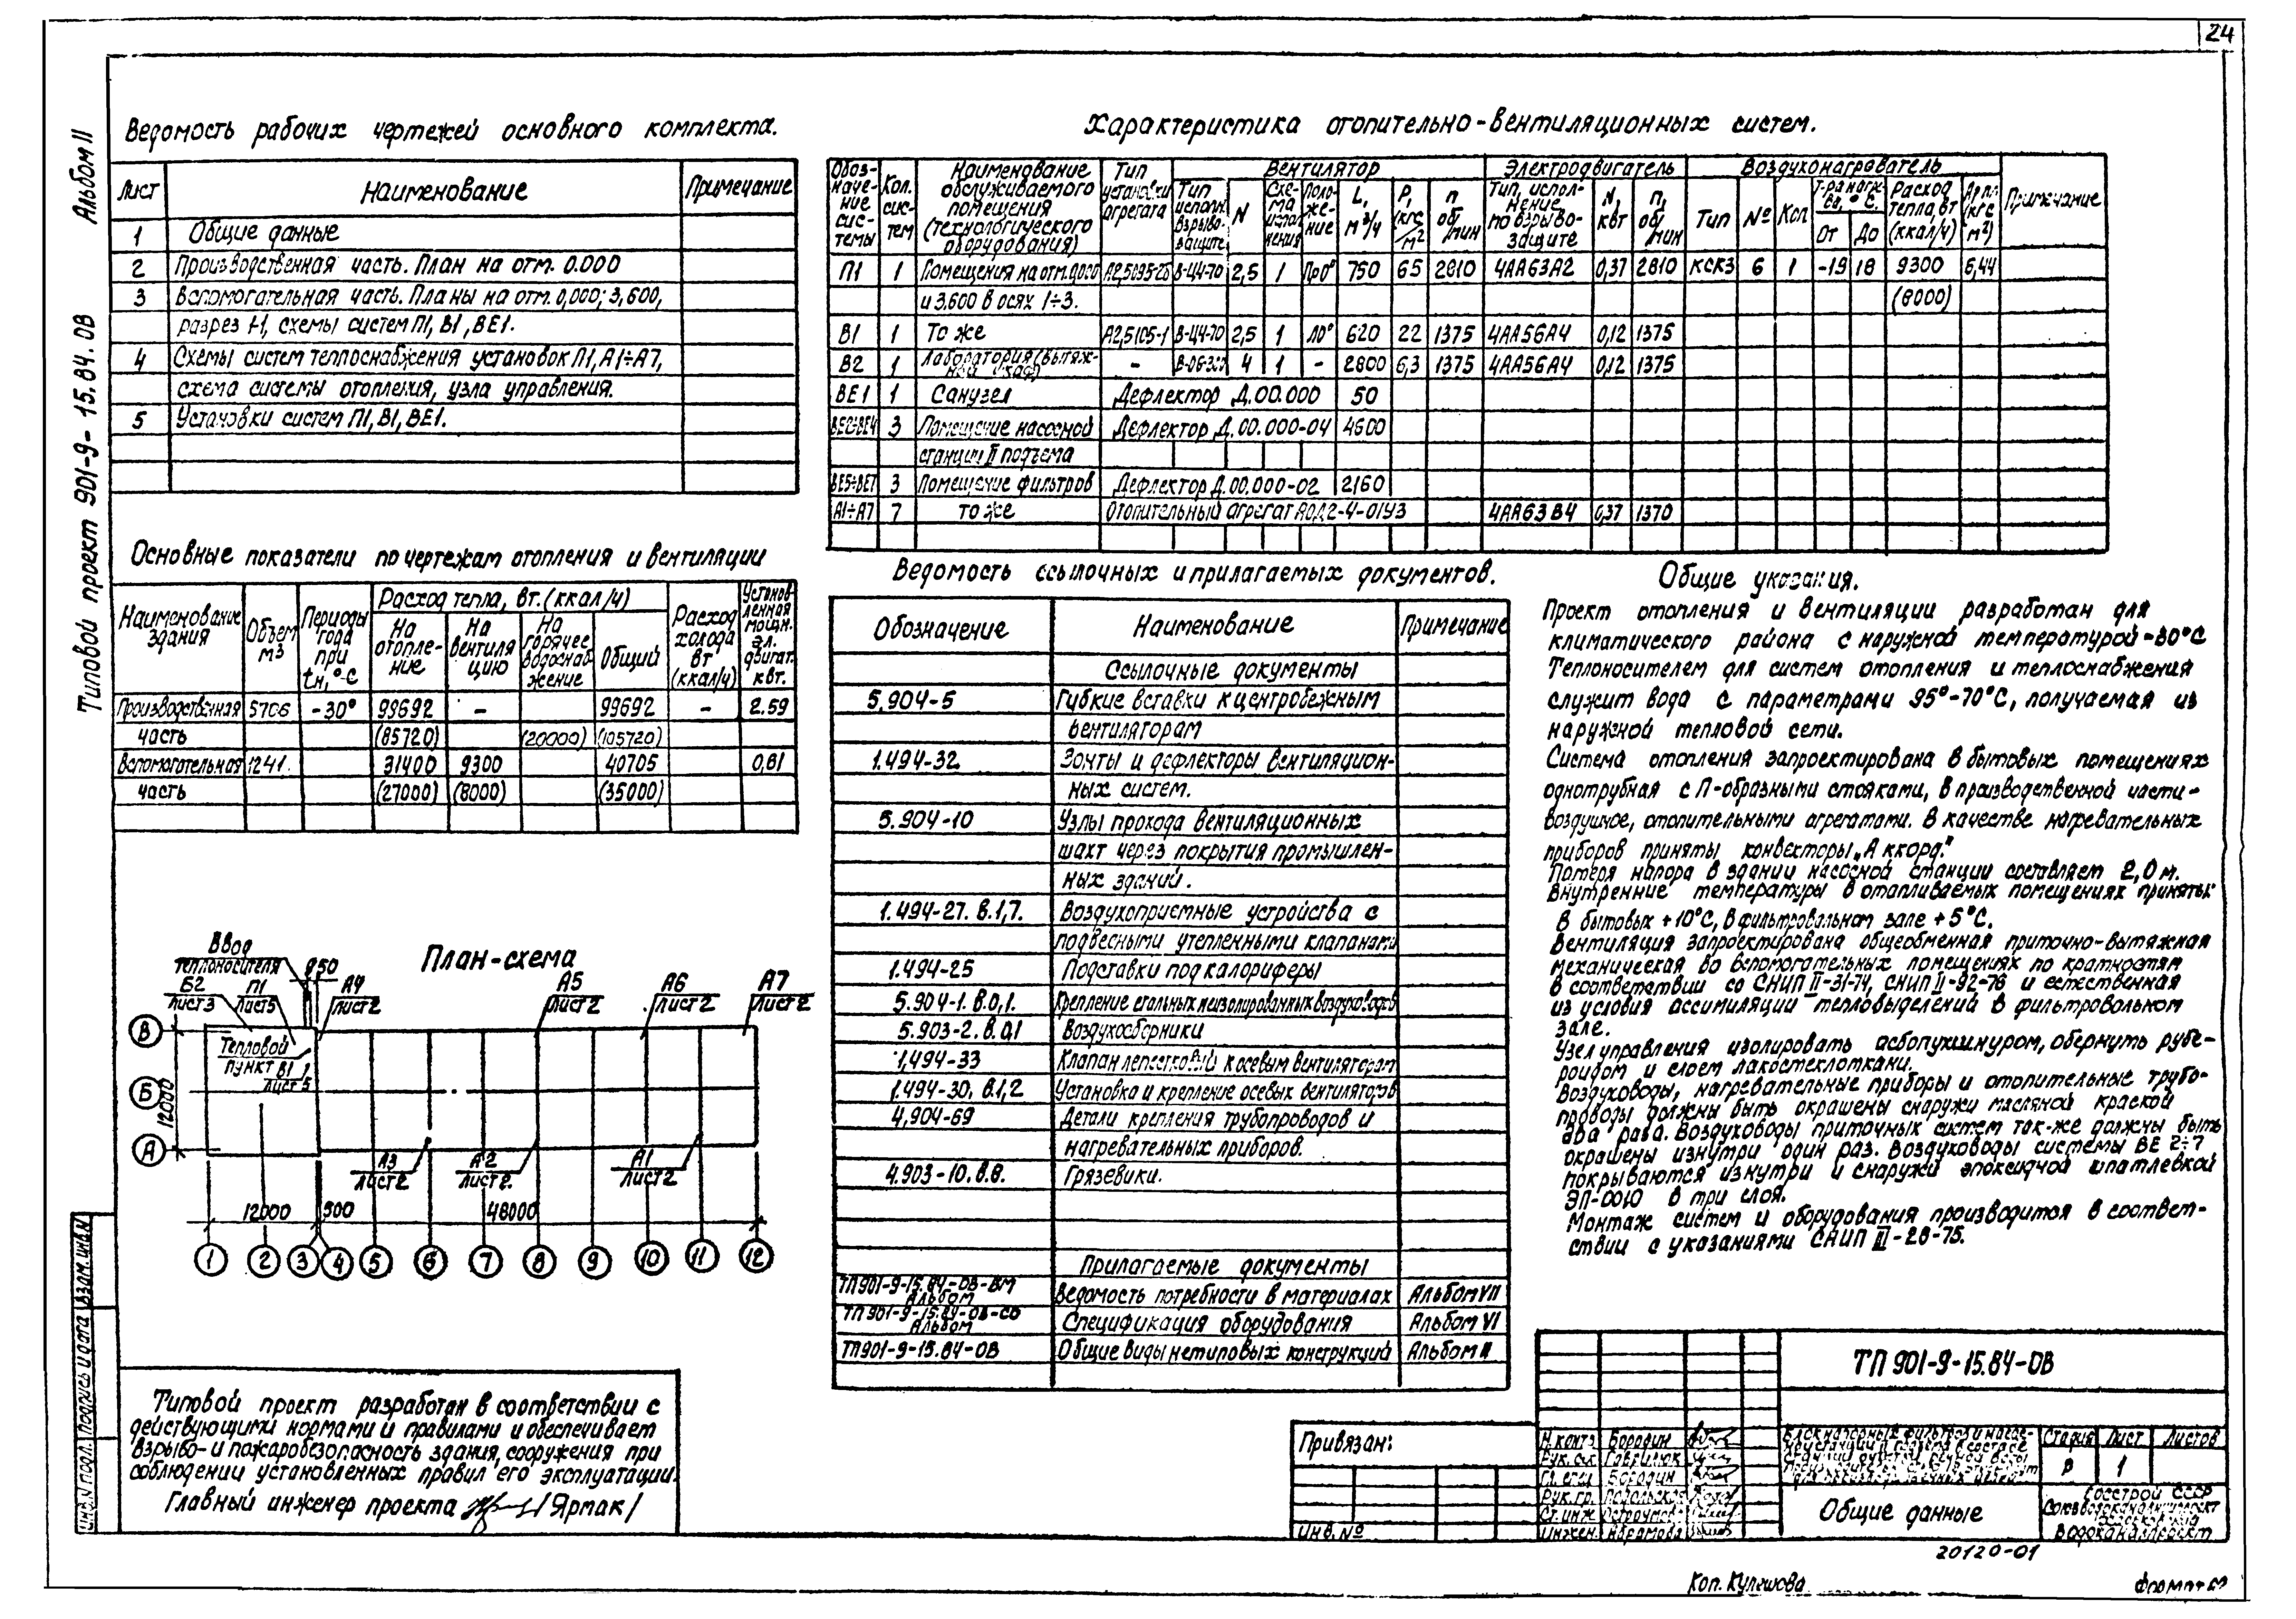 24
Альбом II
Типовой проект 901-9-15.84.ОВ
Ведомость рабочих чертежей основного комплекта.
Лист Наименование Примечание
1 Общие данные
2 Производственная часть. План на отм. 0.000
3 Вспомогательная часть. Планы на отм. 0,000; 3,600,
разрез 1-1, схемы систем П1, В1, ВЕ1.
4 Схемы систем теплоснабжения установок П1, А1÷А7,
схема системы отопления, узла управления.
5 Установки систем П1, В1, ВЕ1.
Основные показатели по чертежам отопления и вентиляции
Наименование здания Объем м3 Периоды года при tн, °С Расход тепла, вт. (ккал/ч) Расход холода вт (ккал/ч) Установленная мощн. эл. двигат. квт.
На отопление На вентиляцию На горячее водоснабжение Общий
Производственная 5706 -30° 99692 - 99692 - 2.59
часть (85720) (20000) (105720)
Вспомогательная 1241. 31400 9300 40705 0,61
часть (27000) (8000) (35000)
План-схема
Ввод
теплоносителя 950
Б2 лист3 П1 лист5 А4 лист2 А5 лист2 А6 лист2 А7 лист2
Тепловой
пункт В1 лист 5
В
Б
А
12000
А3 лист2 А2 лист2. А1 лист2
12000 500 48000
1 2 3 4 5 6 7 8 9 10 11 12
Типовой проект разработан в соответствии с
действующими нормами и правилами и обеспечивает
взрыво- и пожаробезопасность здания, сооружения при
соблюдении установленных правил его эксплуатации.
Главный инженер проекта /Ярмак/
Характеристика отопительно-вентиляционных систем.
Обозначение системы Кол. систем Наименование обслуживаемого помещения (технологического оборудования) Тип установки агрегата Вентилятор Электродвигатель Воздухонагреватель Примечание
Тип исполн. взрывозащите N Схема исполнения Положение L, м3/ч P, (кгс/м2 n об/мин Тип, исполнение по взрывозащите N, квт n, об/мин Тип № Кол Т-ра нагрева, °С. От До Расход тепла, вт (ккал/ч) (кгс м2)
П1 1 Помещения на отм. 0.000 В-Ц4-70 2,5 1 Пр0° 750 65 2810 4АА63А2 0,37 2810 КСК3 6 1 -19 18 9300 6,44
и 3.600 в осях 1÷3. (8000)
В1 1 То же А2,5105-1 В-Ц4-70 2,5 1 Л0° 620 22 1375 4АА56А4 0,12 1375
В2 1 Лаборатория (вытяжной шкаф) - В-06-300 4 1 - 2800 6,3 1375 4АА56А4 0,12 1375
ВЕ1 1 Санузел Дефлектор Д.00.000 50
ВЕ2÷ВЕ4 3 Помещение насосной Дефлектор Д.00.000-04 4600
станции II подъема
ВЕ5÷ВЕ7 3 Помещение фильтров Дефлектор Д.00.000-02 2160
А1÷А7 7 то же Отопительный агрегат АОД2-4-01У3 4АА63В4 0,37 1370
Ведомость ссылочных и прилагаемых документов.
Обозначение Наименование Примечание
Ссылочные документы
5.904-5 Гибкие вставки к центробежным
вентиляторам
1.494-32 Зонты и дефлекторы вентиляцион-
ных систем.
5.904-10 Узлы прохода вентиляционных
шахт через покрытия промышлен-
ных зданий.
1.494-27. в.1,7. Воздухоприемные устройства с
подвесными утепленными клапанами
1.494-25 Подставки под калориферы
5.904-1. в.0,1. Крепление стальных неизолированных воздуховодов
5.903-2. в.0,1 Воздухосборники
1,494-33 Клапан лепестковый к осевым вентиляторам
1.494-30. в.1,2 Установка и крепление осевых вентиляторов
4.904-69 Детали крепления трубопроводов и
нагревательных приборов.
4.903-10. в.8. Грязевики.
Прилагаемые документы
ТП901-9-15.84-ОВ-ВМ Альбом Ведомость потребности в материалах Альбом VII
ТП901-9-15.84-ОВ-СО Альбом Спецификация оборудования Альбом VI
ТП901-9-15.84-ОВ Общие виды нетиповых конструкций Альбом II
Общие указания.
Проект отопления и вентиляции разработан для
климатического района с наружной температурой -30°С
Теплоносителем для систем отопления и теплоснабжения
служит вода с параметрами 95°-70°С, получаемая из
наружной тепловой сети.
Система отопления запроектирована в бытовых помещениях
однотрубная с П-образными стояками, в производственной части-
воздушное, отопительными агрегатами. В качестве нагревательных
приборов приняты конвекторы „Аккорд."
Потеря напора в здании насосной станции составляет 2,0 м.
Внутренние температуры в отапливаемых помещениях приняты:
в бытовых +10°С, в фильтровальном зале +5°С.
Вентиляция запроектирована общеобменная приточно-вытяжная
механическая во вспомогательных помещениях по кратностям
в соответствии со СНИП II-31-74, СНИП II-92-76 и естественная
из условия ассимиляции тепловыделений в фильтровальном
зале.
Узел управления изолировать асбопухшнуром, обернуть рубе-
роидом и слоем лакостеклоткани.
Воздуховоды, нагревательные приборы и отопительные трубо-
проводы должны быть окрашены снаружи масляной краской
два раза. Воздуховоды приточных систем так-же должны быть
окрашены изнутри один раз. Воздуховоды системы ВЕ 2÷7
покрываются изнутри и снаружи эпоксидной шпатлевкой
ЭП-0010 в три слоя.
Монтаж систем и оборудования производится в соответ-
ствии с указаниями СНИП III-28-75.
ТП 901-9-15.84-ОВ
Привязан:
Инв.№
Н.конт. Бородин
Рук. Гаврилюк
Гл. спец Бородин
Рук. гр. Подольская
Ст. инж.
Инжен. Абрамова
Стадия Лист Листов
Р 1
Общие данные
Госстрой СССР
Союзводоканалпроект
Водоканалпроект
Инв.N подл. Подпись и дата Взам. инв.N
20120-01
Коп. Кулешова
Формат